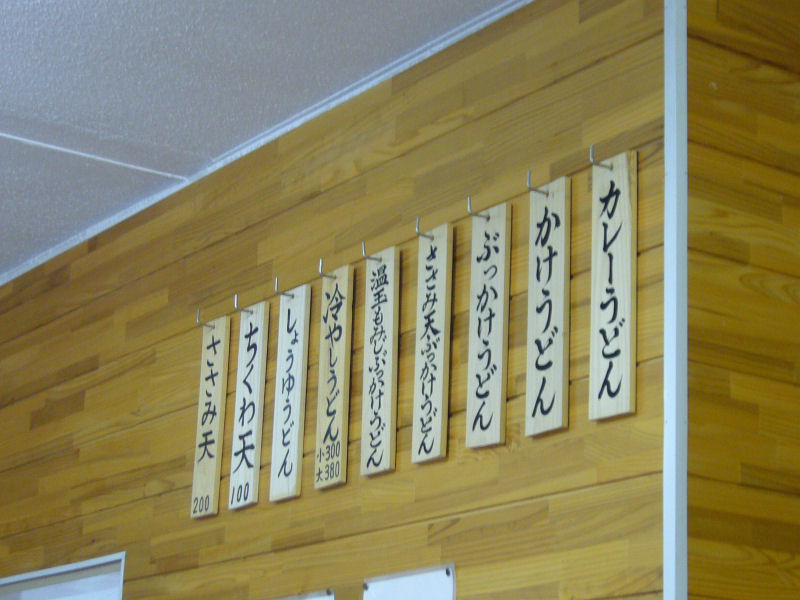 カレーうどん
かけうどん
ぶっかけうどん
ささみ天ぶっかけうどん
温玉もみじぶっかけうどん
冷やしうどん
小300
大380
しょうゆうどん
ちくわ天
100
ささみ天
200